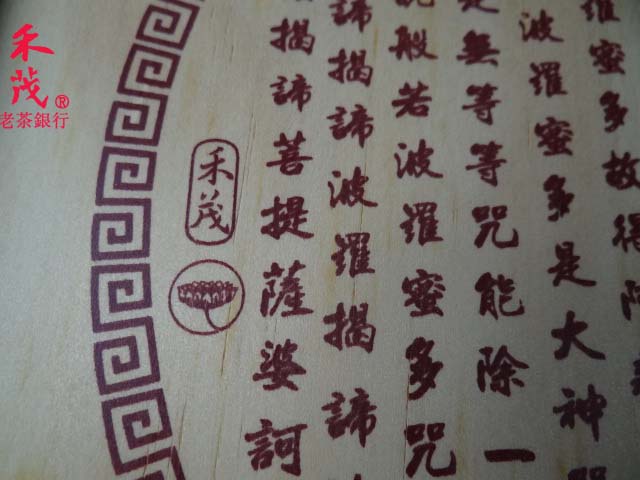 禾茂®
老茶銀行
羅蜜多故得阿
波羅蜜多是大神咒
是無等等咒能除一
說般若波羅蜜多咒
諦揭諦波羅揭諦
揭諦菩提薩婆訶
禾茂